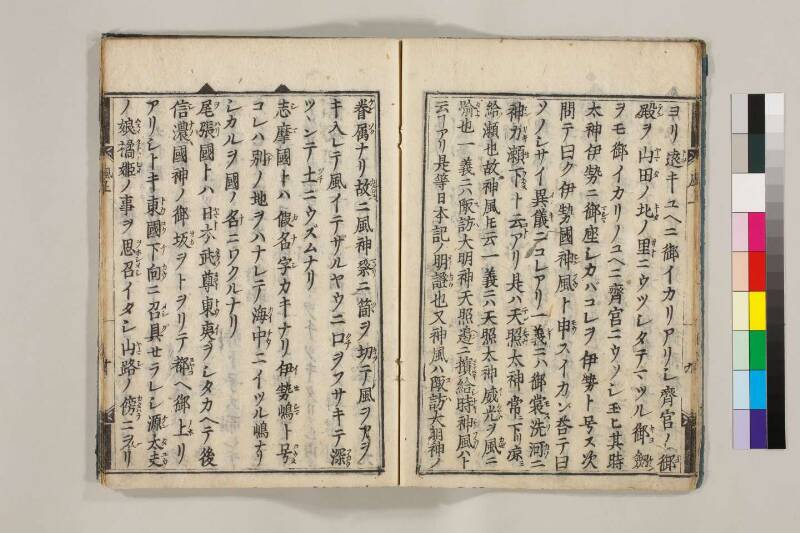 ヨリ遠キユヘニ御イカリアリシ齊宮ノ御
殿ヲ山田ノ北ノ里ニウツシタテマツル御劔
ヲモ御イカリノユヘニ齊宮ニウツシ玉ヒ其時
太神伊勢ニ御座シカバコレヲ伊勢ト号ス次
問テ曰ク伊勢國神風ト申スイカン答テ曰
ソノシサイ異儀ニコレアリ一義ニハ御裳洗河ニ
神ガ瀬下ト云アリ是ハ天照太神常ニ下リ涼
給瀬也故神風ト云一義ニハ天照太神威光ヲ風ニ
喻也一義ニハ諏訪大明神天照 給時神風ハト
云フアリ是等日本記ノ明證也又神風ハ諏訪大明神ノ
眷属ナリ故ニ風神祭ニ筒ヲ切テ風ヲアヲ
キ入レテ風イテザルヤウニ口ヲフサキテ深
ツヽンテ土ニウズムナリ
志摩國トハ假名字カキナリ伊勢嶋ト号
コレハ別ノ地ヲハナレテ海中ニイツル嶋ナリ
シカルヲ國ノ名ニワクルナリ
尾張國トハ日本武尊東夷ヲシタカヘテ後
信濃國神ノ御坂ヲトヲリテ都ヘ御上リ
アリシトキ東國下向ニ召具セラレシ源太夫
ノ娘橋姫ノ事ヲ思召イタシ山路ノ傍ニ子リ